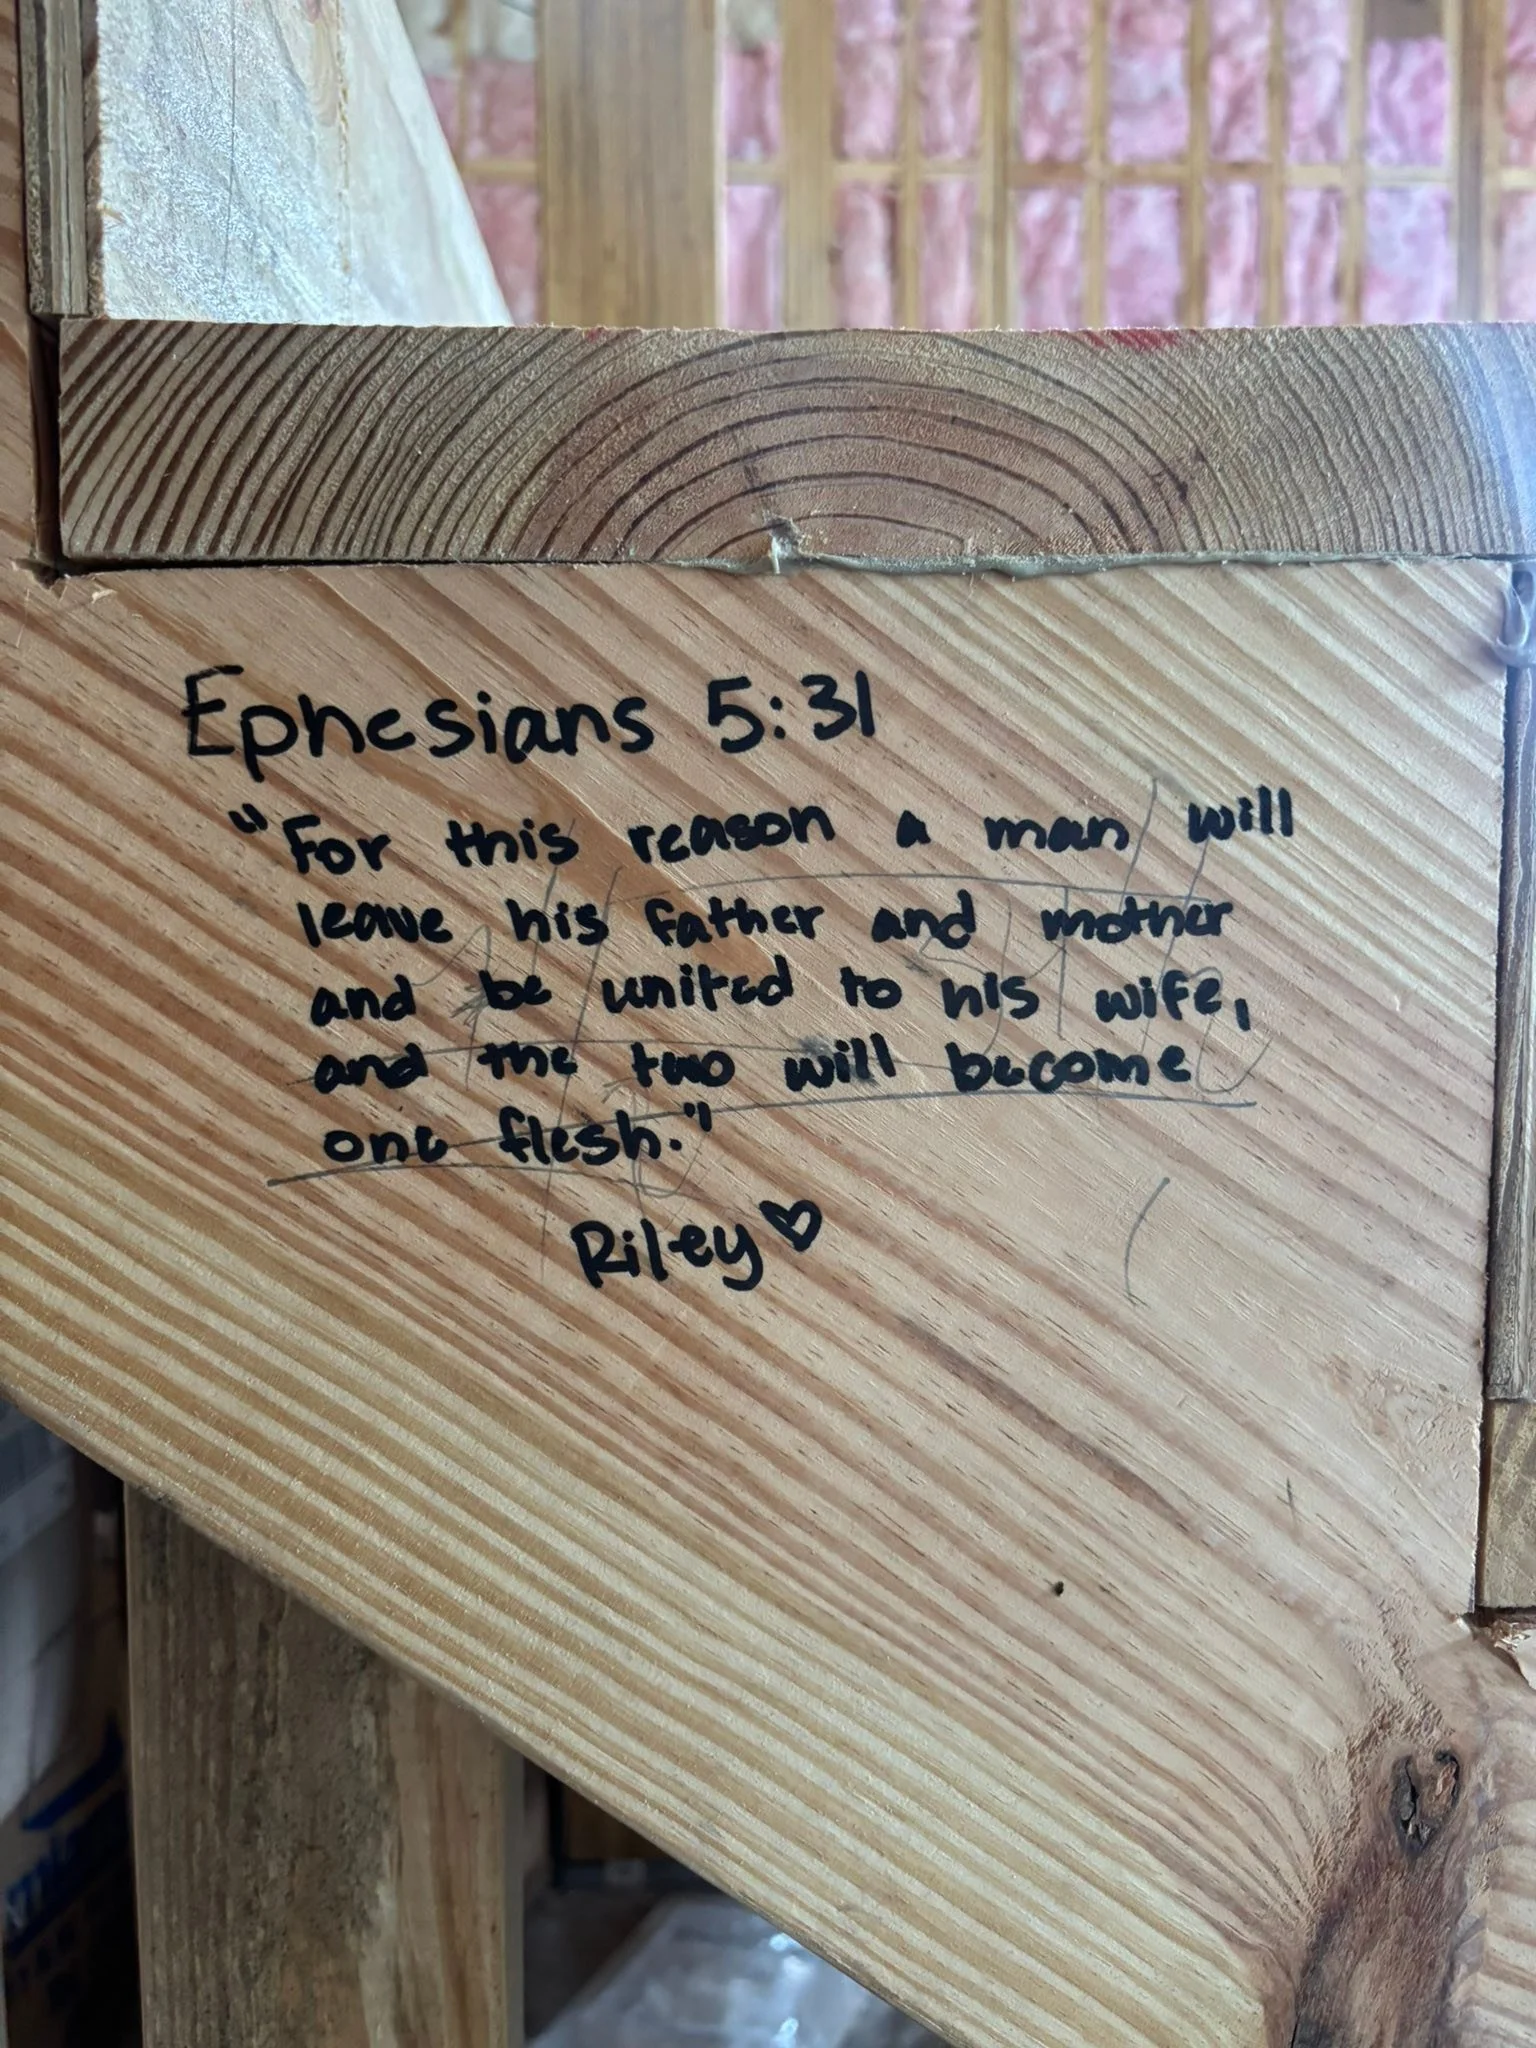 Ephesians 5:31
"For this reason a man will
leave his father and mother
and be united to his wife,
and the two will become
one flesh."
Riley ♡